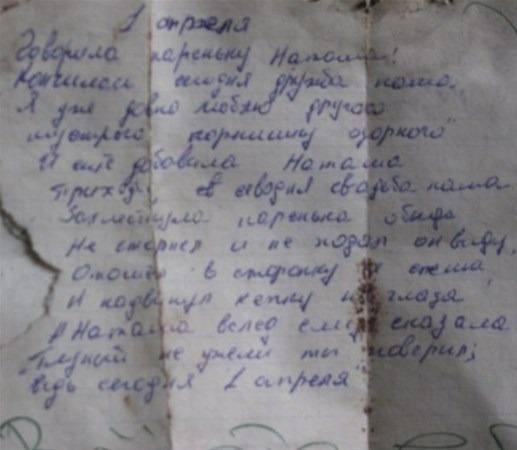 1 апреля
Говорила пареньку Наташа!
Кончилась сегодня дружба наша.
Я уже давно люблю другого
шустрого парнишку озорного
И ещё добавила Наташа
Приходи, сегодня свадьба наша
Захлестнула паренька обида
Не стерпел и не подал он виду,
Отошёл в сторонку
И надвинул кепку на глаза
А Наташа вслед ему сказала
Глупый не ужели ты поверил;
ведь сегодня 1 апреля